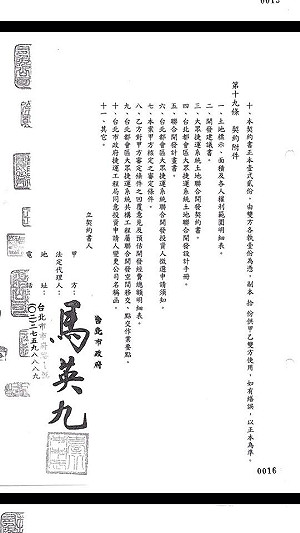 十、本契約書正本壹式貳份，由雙方各執壹份為憑，副本 拾 份供甲乙雙方使用，如有繕誤，以正本為準。
第十九條 契約附件
一、土地標示、面積及各人權利範圍明細表。
二、開發建議書。
三、大眾捷運系統土地聯合開發契約書。
四、台北都會區大眾捷運系統土地聯合開發設計手冊。
五、聯合開發計畫書。
六、台北都會區大眾捷運系統聯合開發投資人徵選申請須知。
七、本案甲方核定之審定條件。
八、乙方對甲方審定條件之回覆意見及預估開發經費總額明細表。
九、台北都會區大眾捷運系統共構工程屬聯合開發空間移交、點交作業要點。
十、台北市政府捷運工程局同意投資申請人變更公司名稱函。
十一、其它。
立契約書人
甲 方：台北市政府
法定代理人：馬英九
地 址：台北市
電 話：
0016